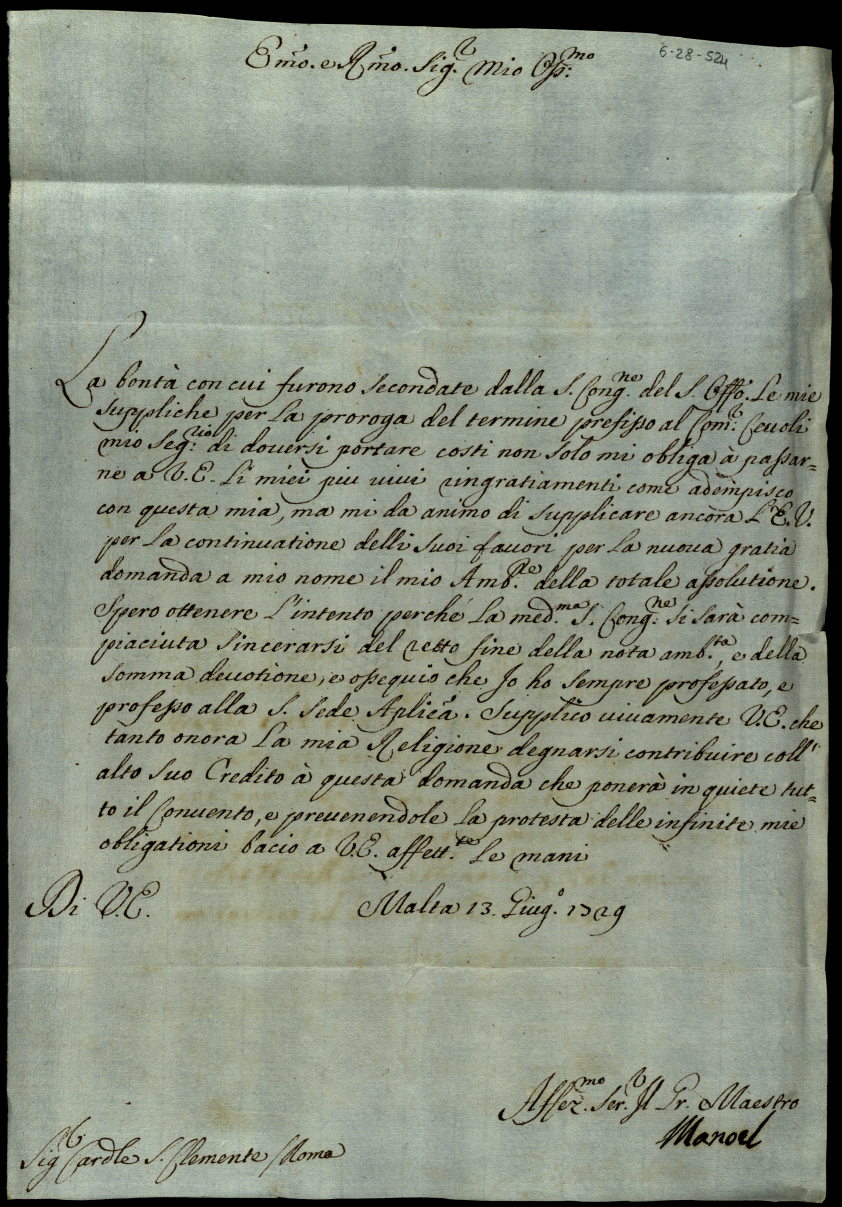 6-28-524
Emo. e Rmo. Sig.r Mio Oss:mo
La bontà con cui furono secondate dalla S. Cong.ne del S. Offo. Le mie
suppliche per La proroga del termine prefisso al Com:r Cevoli
mio Seg:rio di doversi portare costi non solo mi obliga à passar=
ne a V.E. Li miei piu vivi ringratiamenti come adempisco
con questa mia, ma mi da animo di supplicare ancora L'E.V.
per La continuatione delli suoi favori per La nuova gratia
domanda a mio nome il mio Amb.re della totale assolutione.
Spero ottenere L'intento perché La med.ma S. Cong:ne si sarà com=
piaciuta sincerarsi del retto fine della nota amb.ta, e della
somma devotione, e ossequio che Jo ho sempre professato, e
professo alla S. Sede Aplicá. Supplico vivamente V.E. che
tanto onora La mia Religione degnarsi contribuire coll'
alto suo Credito à questa domanda che ponerà in quiete tut=
to il Convento, e prevenendole La protesta delle infinite mie
obligationi bacio a V.E. affett.te Le mani
Di V.E. Malta 13. Giug.o 1729
Affez.mo Ser.r Jl Gr. Maestro
Manoel
Sig.r Cardle S. Clemente Roma